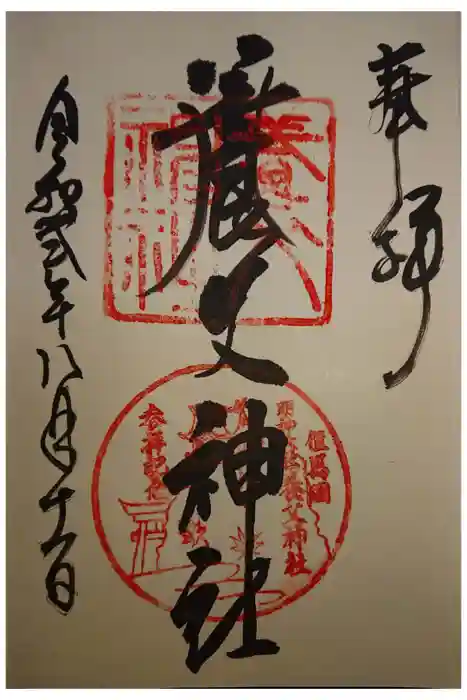 奉拝
養父神社
但馬國
養父神社
参拝記念
令和弐年八月十一日